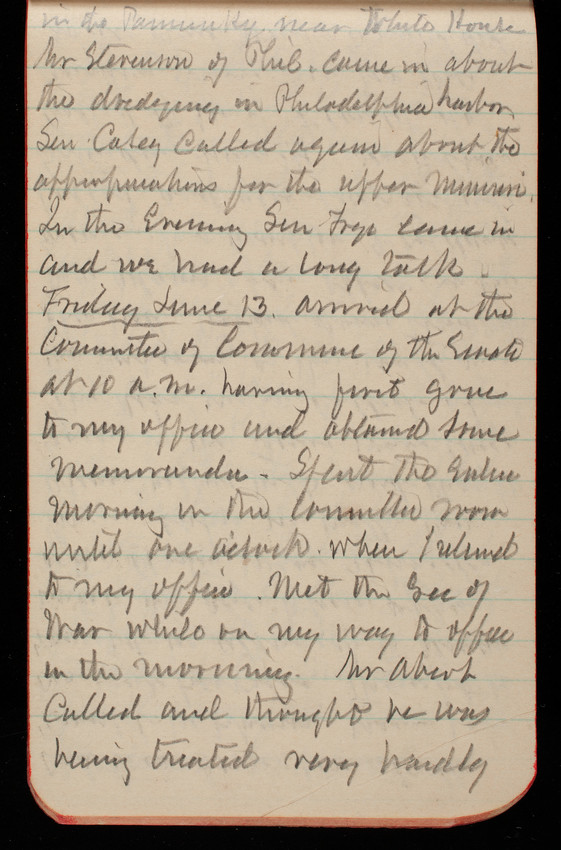 in the Pamunky near White House
Mr Stevenson of Phil. came in about
the dredging in Philadelphia harbor
Sen Casey called again about the
appropriations for the upper Missouri.
In the Evening Sen Frye came in
and we had a long talk.
Friday June 13. arrived at the
Committee of Commerce of the Senate
at 10 a.m. having first gone
to my office and obtained some
memoranda - Spent the Entire
morning in the Committee room
until one oclock. when I returned
to my office. Met the Sec of
War while on my way to office
in the morning. Mr Abert
called and thought he was
being treated very hardly